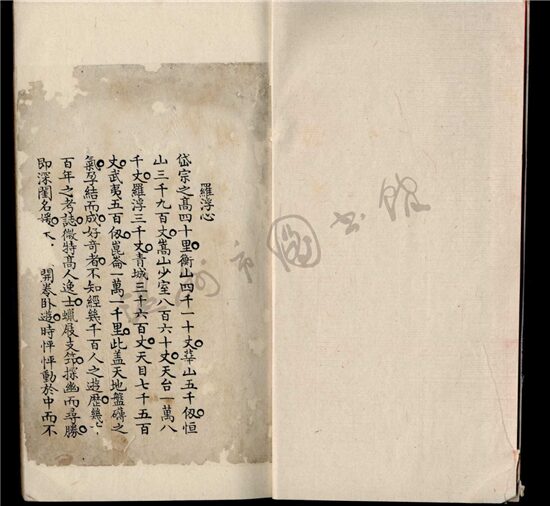 羅浮心
岱宗之高四十里衡山四千一十丈華山五千仭恒
山三千九百丈嵩山少室八百六十丈天台一萬八
千丈羅浮三千丈青城三千六百丈天目七千五百
丈武夷五百仭崑崙一萬一千里此盖天地盤礴之
氣孕結而成好奇者不知經幾千百人之遊歷幾
百年之考誌微特高人逸士蠟屐支笻探幽而尋勝
即深閨名媛 開卷卧遊時怦怦動於中而不
市圖書館